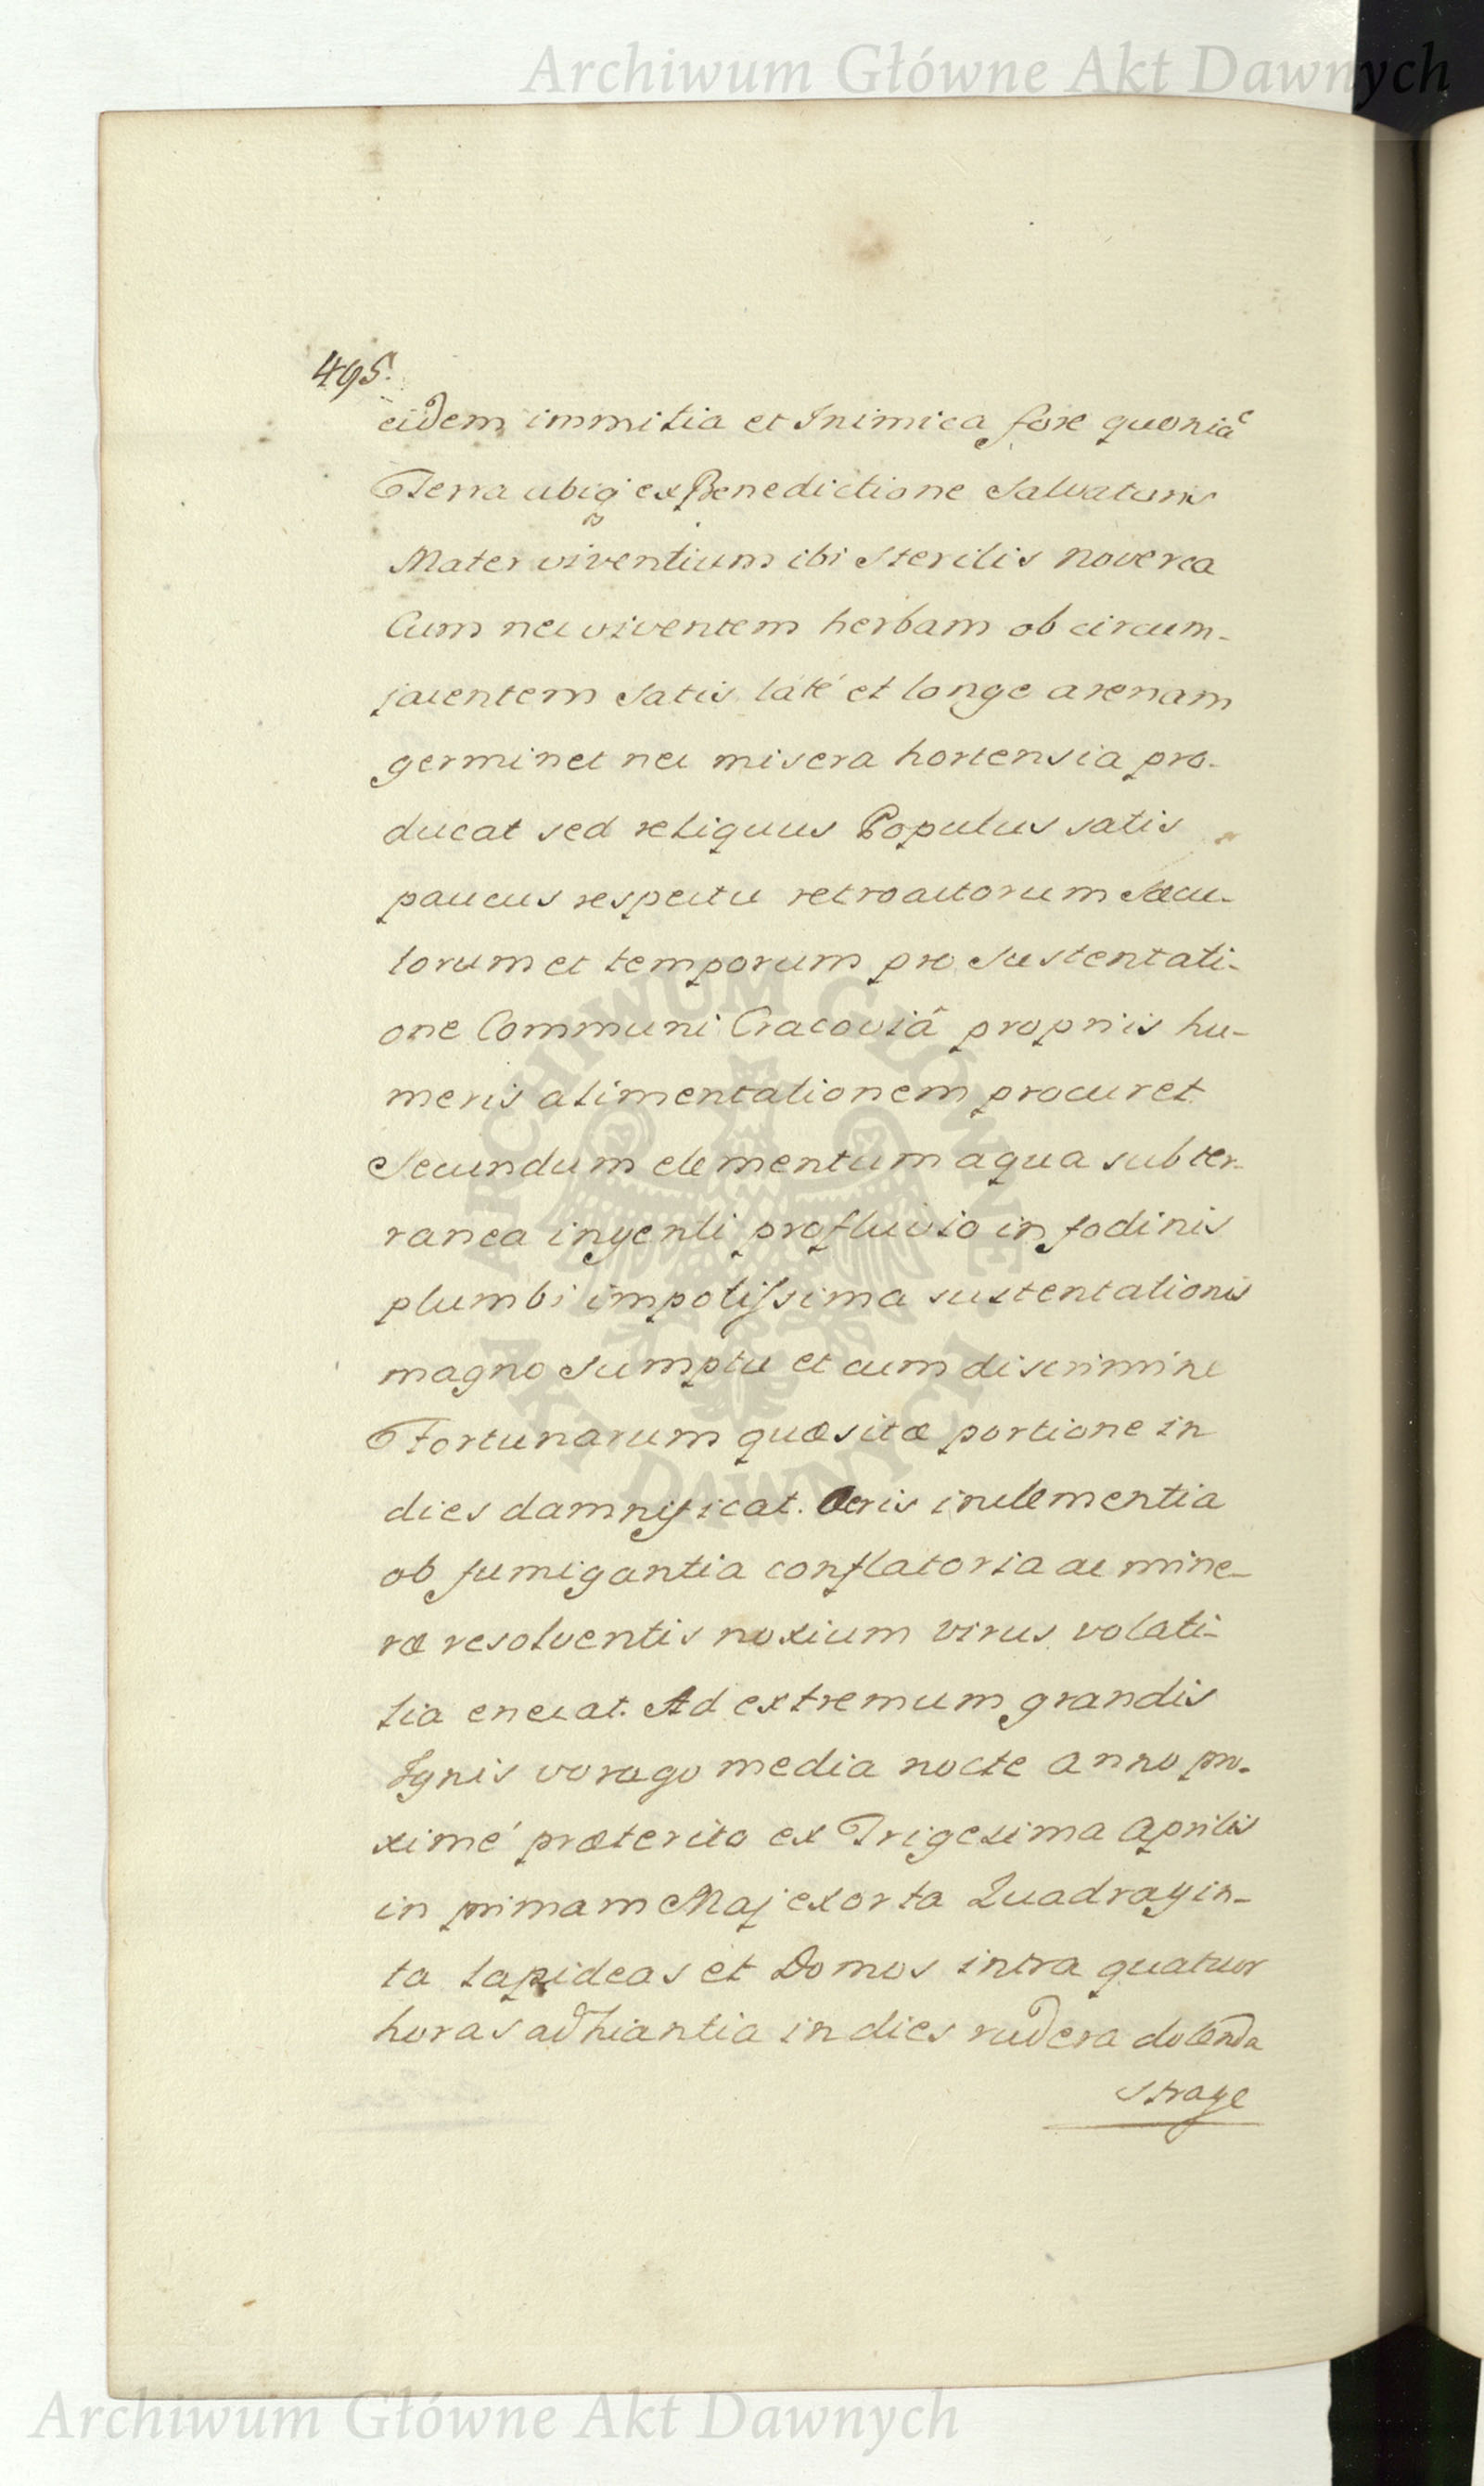 Archiwum Główne Akt Dawnych
495.
eidem immitia et Inimica fore quoniã
Terra ubiq; ex Benedictione Salvatoris
Mater viventium ibi Sterilis noverca
Cum nec viventem herbam ob circum-
jacentem Satis laté et longe arenam
germinet nec misera hortensia pro-
ducat sed reliquus Populus satis
paucus respectu retroactorum Sæcu-
lorum et temporum pro Sustentati-
one Communi Cracoviâ propriis hu-
meris alimentationem procuret
Secundum elementum aqua subter-
ranea ingenti profluvio in fodinis
plumbi impotissima sustentationis
magno Sumptu et cum discrimine
Fortunarum quæsitæ portione in
dies damnificat. Aeris inclementia
ob fumigantia conflatoria ac mine-
ræ resolventis noxium virus volati-
lia enecat. Ad extremum grandis
Ignis vorago media nocte anno pro-
ximé præterito ex Trigesima Aprilis
in primam Maj exorta Quadragin-
ta lapideas et Domos intra quatuor
horas adhiantia in dies rudera dolenda
strage
ARCHIWUM GŁÓWNE AKT DAWNYCH
Archiwum Główne Akt Dawnych